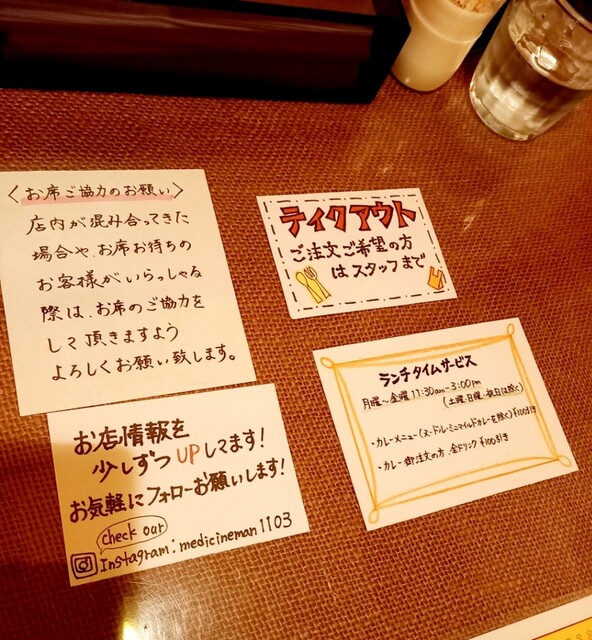 〈お席ご協力のお願い〉
店内が混み合ってきた
場合や、お席お待ちの
お客様がいらっしゃる
際は、お席のご協力を
して頂きますよう
よろしくお願い致します。
ティクアウト
ご注文ご希望の方
はスタッフまで
ランチタイムサービス
月曜〜金曜 11:30am-3:00pm
(土曜、日曜、祝日は除く)
・カレーメニュー(ヌードル・ミニマイルドカレーを除く)¥100引き
・カレー御注文の方、全ドリンク ¥100引き
お店情報を
少しずつUPしてます!
お気軽にフォローお願いします!
check our
Instagram: medicineman1103